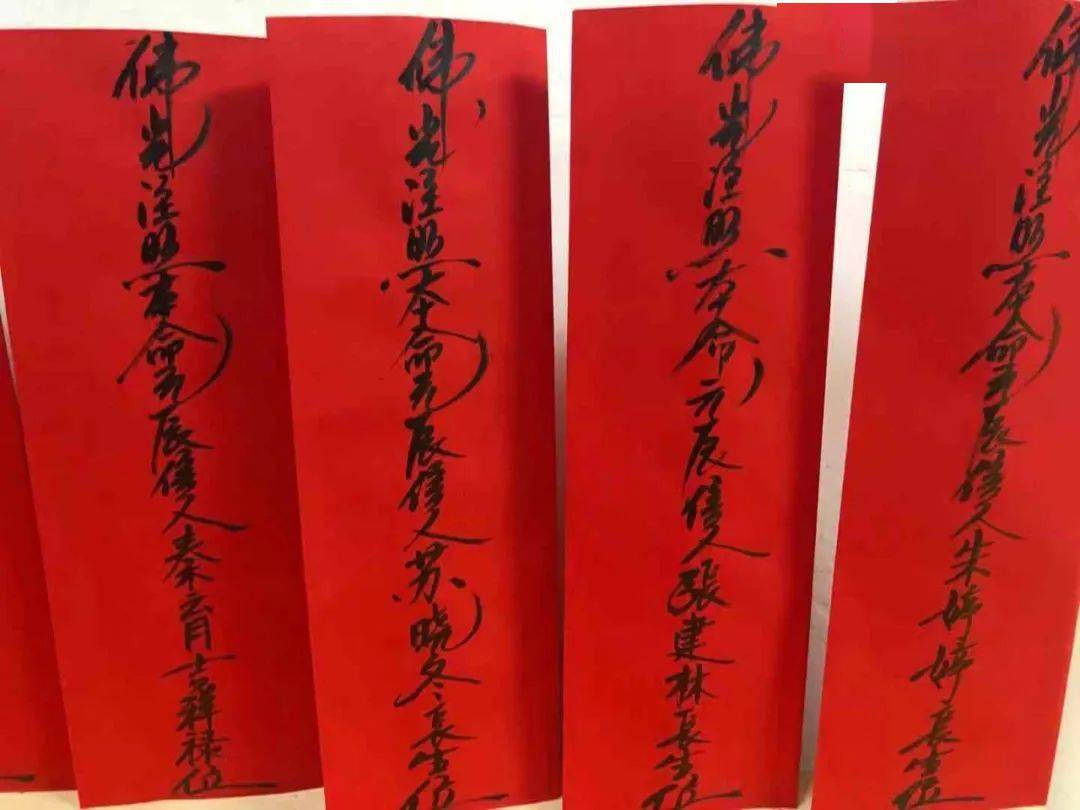 佛光注照本命元辰信人秦育吉祥禄位
佛光注照本命元辰信人苏晓冬長生位
佛光注照本命元辰信人張建林長生位
佛光注照本命元辰信人朱婷婷長生位